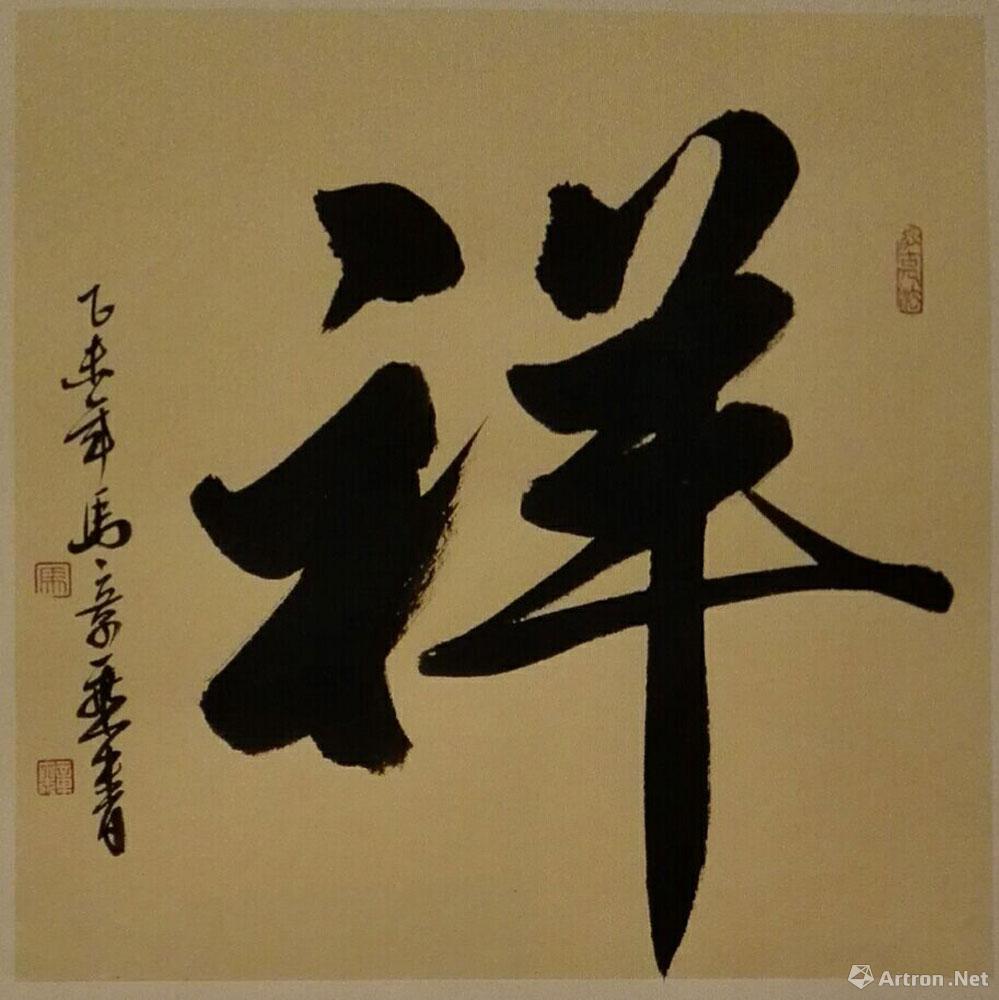 祥
乙未年馬章乘書
Artron.Net